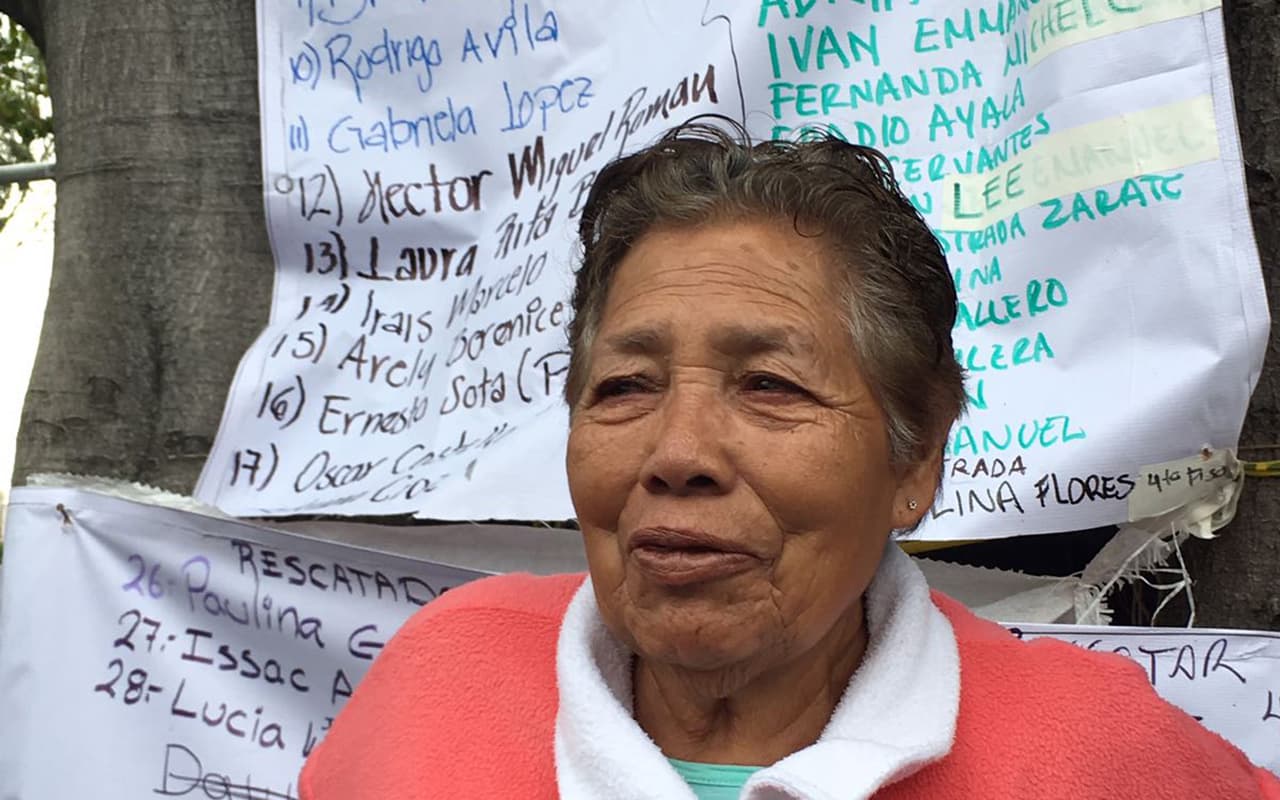 10) Rodrigo Avila
11) Gabriela Lopez
12) Hector Miguel Roman
13) Laura Rita
14) Irais Marcelo
15) Arely Berenice
16) Ernesto Sota (F
17) Oscar
IVAN EMMAN
FERNANDA MICHELLE
ELADIO AYALA
CERVANTES
N LEE EMANUEL
STRADA ZARATE
INA
ALLERO
LCERA
N
ANUEL
TRADA
LINA FLORES 4to PISO
RESCATADO
26- Paulina G
27:- Issac A
28:- Lucia
TAR